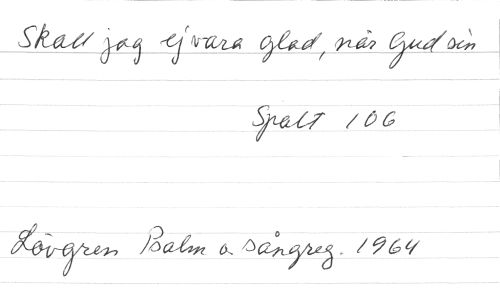 Skall jag ej vara glad, när Gud sin
Spalt 106
Lövgren Psalm o sångreg. 1964